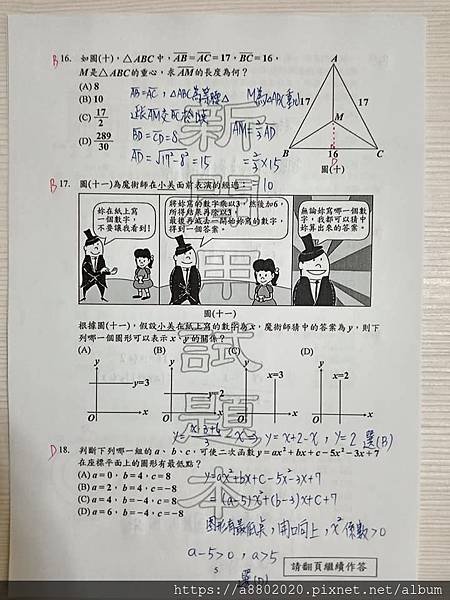 B 16. 如圖(十)，△ABC中，AB=AC=17，BC=16，
M是△ABC的重心，求AM的長度為何？
(A) 8
(B) 10
(C) 17/2
(D) 289/30
AB=AC，△ABC為等腰△
M為△ABC重心
BD=CD=8
AD=√17²-8²=15
AM=2/3 AD
=2/3×15
=10
A
17
17
M
B
16
D
C
圖(十)
B 17. 圖(十一)為魔術師在小美面前表演的經過：
妳在紙上寫
一個數字，
不要讓我看到！
將妳寫的數字乘以3，然後加6，
所得結果再除以3，
最後再減去一開始妳寫的數字，
得到一個答案。
無論妳寫哪一個數
字，我都可以猜中
妳算出來的答案。
圖(十一)
根據圖(十一)，假設小美在紙上寫的數字為x，魔術師猜中的答案為y，則下
列哪一個圖形可以表示x、y的關係？
(A)
(B)
(C)
(D)
y
y=3
O
x
y
y=2
O
x
y
x=3
O
x
y
x=2
O
x
y=(x·3+6)/3-x，y=x+2-x，y=2 選(B)
D 18. 判斷下列哪一組的a、b、c，可使二次函數y=ax²+bx+c-5x²-3x+7
在座標平面上的圖形有最低點？
(A) a=0，b=4，c=8
(B) a=2，b=4，c=-8
(C) a=4，b=-4，c=8
(D) a=6，b=-4，c=-8
y=ax²+bx+c-5x²-3x+7
=(a-5)x²+(b-3)x+c+7
圖形有最低點，開口向上，x²係數>0
a-5>0，a>5
選(D)
5
請翻頁繼續作答
新聞用試題本
https://a8802020.pixnet.net/album